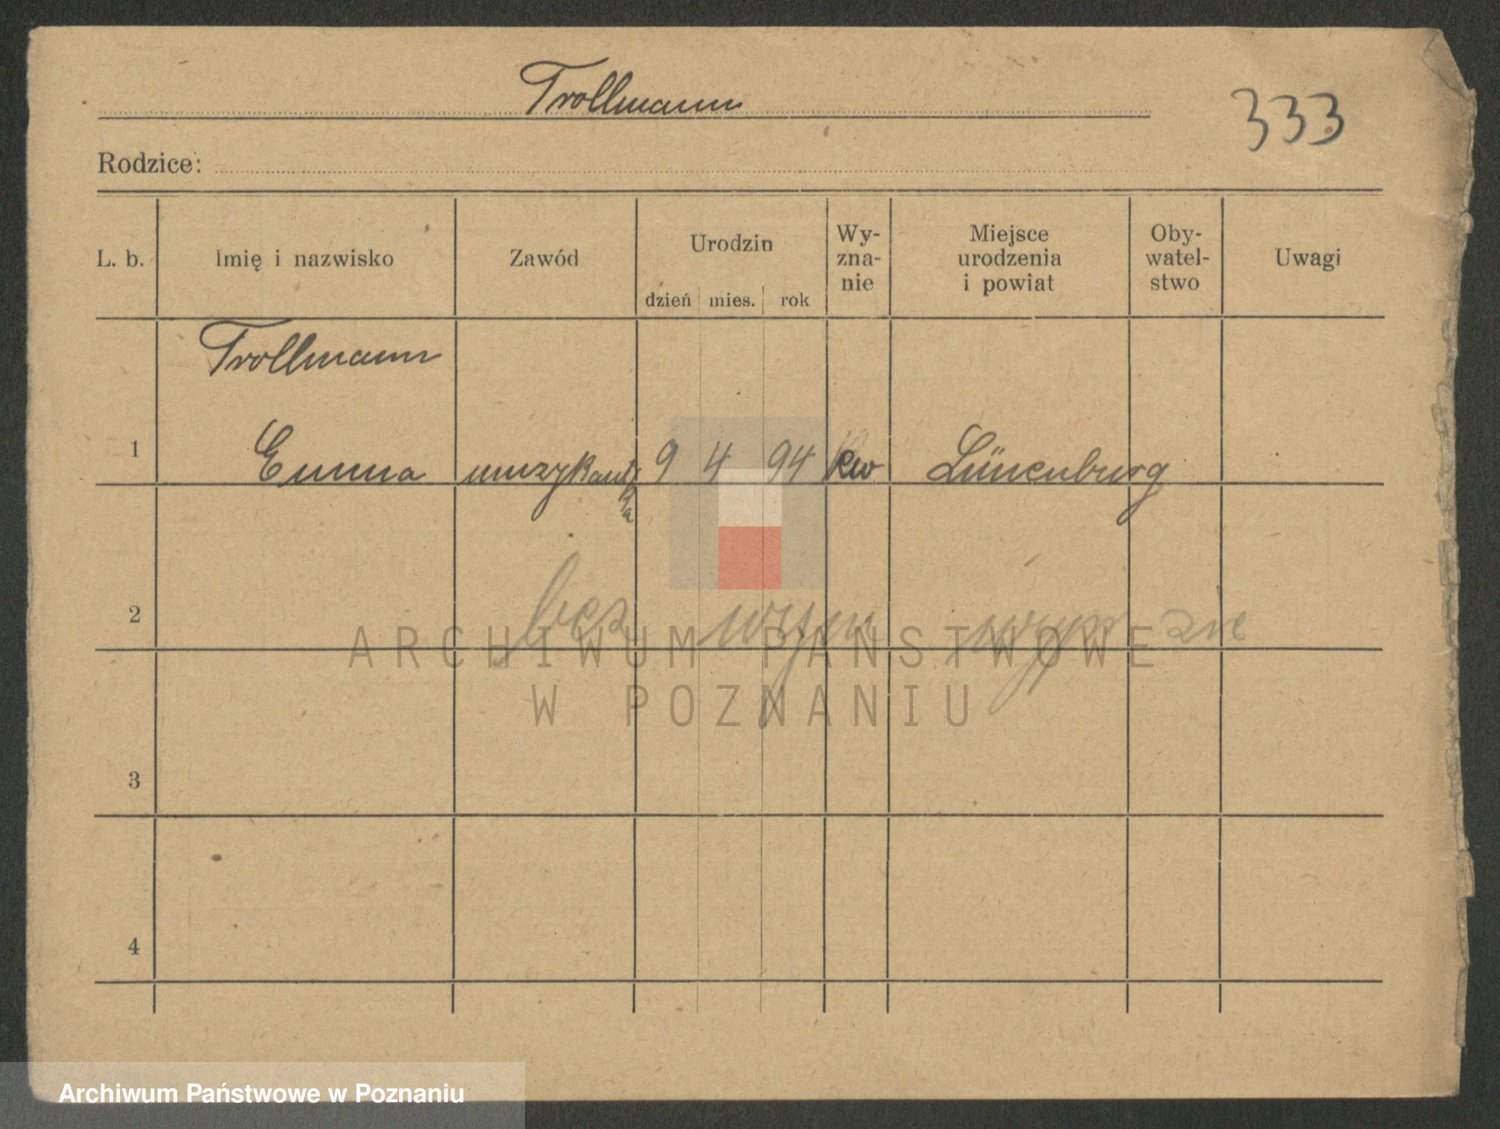 Trollmann
333
Rodzice:
L. b.
Imię i nazwisko
Zawód
Urodzin
dzień mies. rok
Wy-
zna-
nie
Miejsce
urodzenia
i powiat
Oby-
watel-
stwo
Uwagi
Trollmann
1 Emma muzykantka 9 4 94 Lünenburg
2 bez
ARCHIWUM PAŃSTWOWE
W POZNANIU
3
4
Archiwum Państwowe w Poznaniu